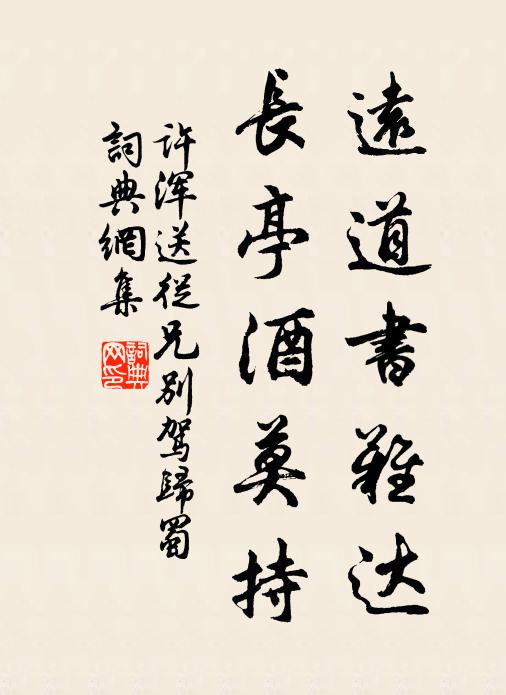 遠道書難达
長亭酒莫持
许渾送從兄别驾歸蜀
詞典網集
詞典网印